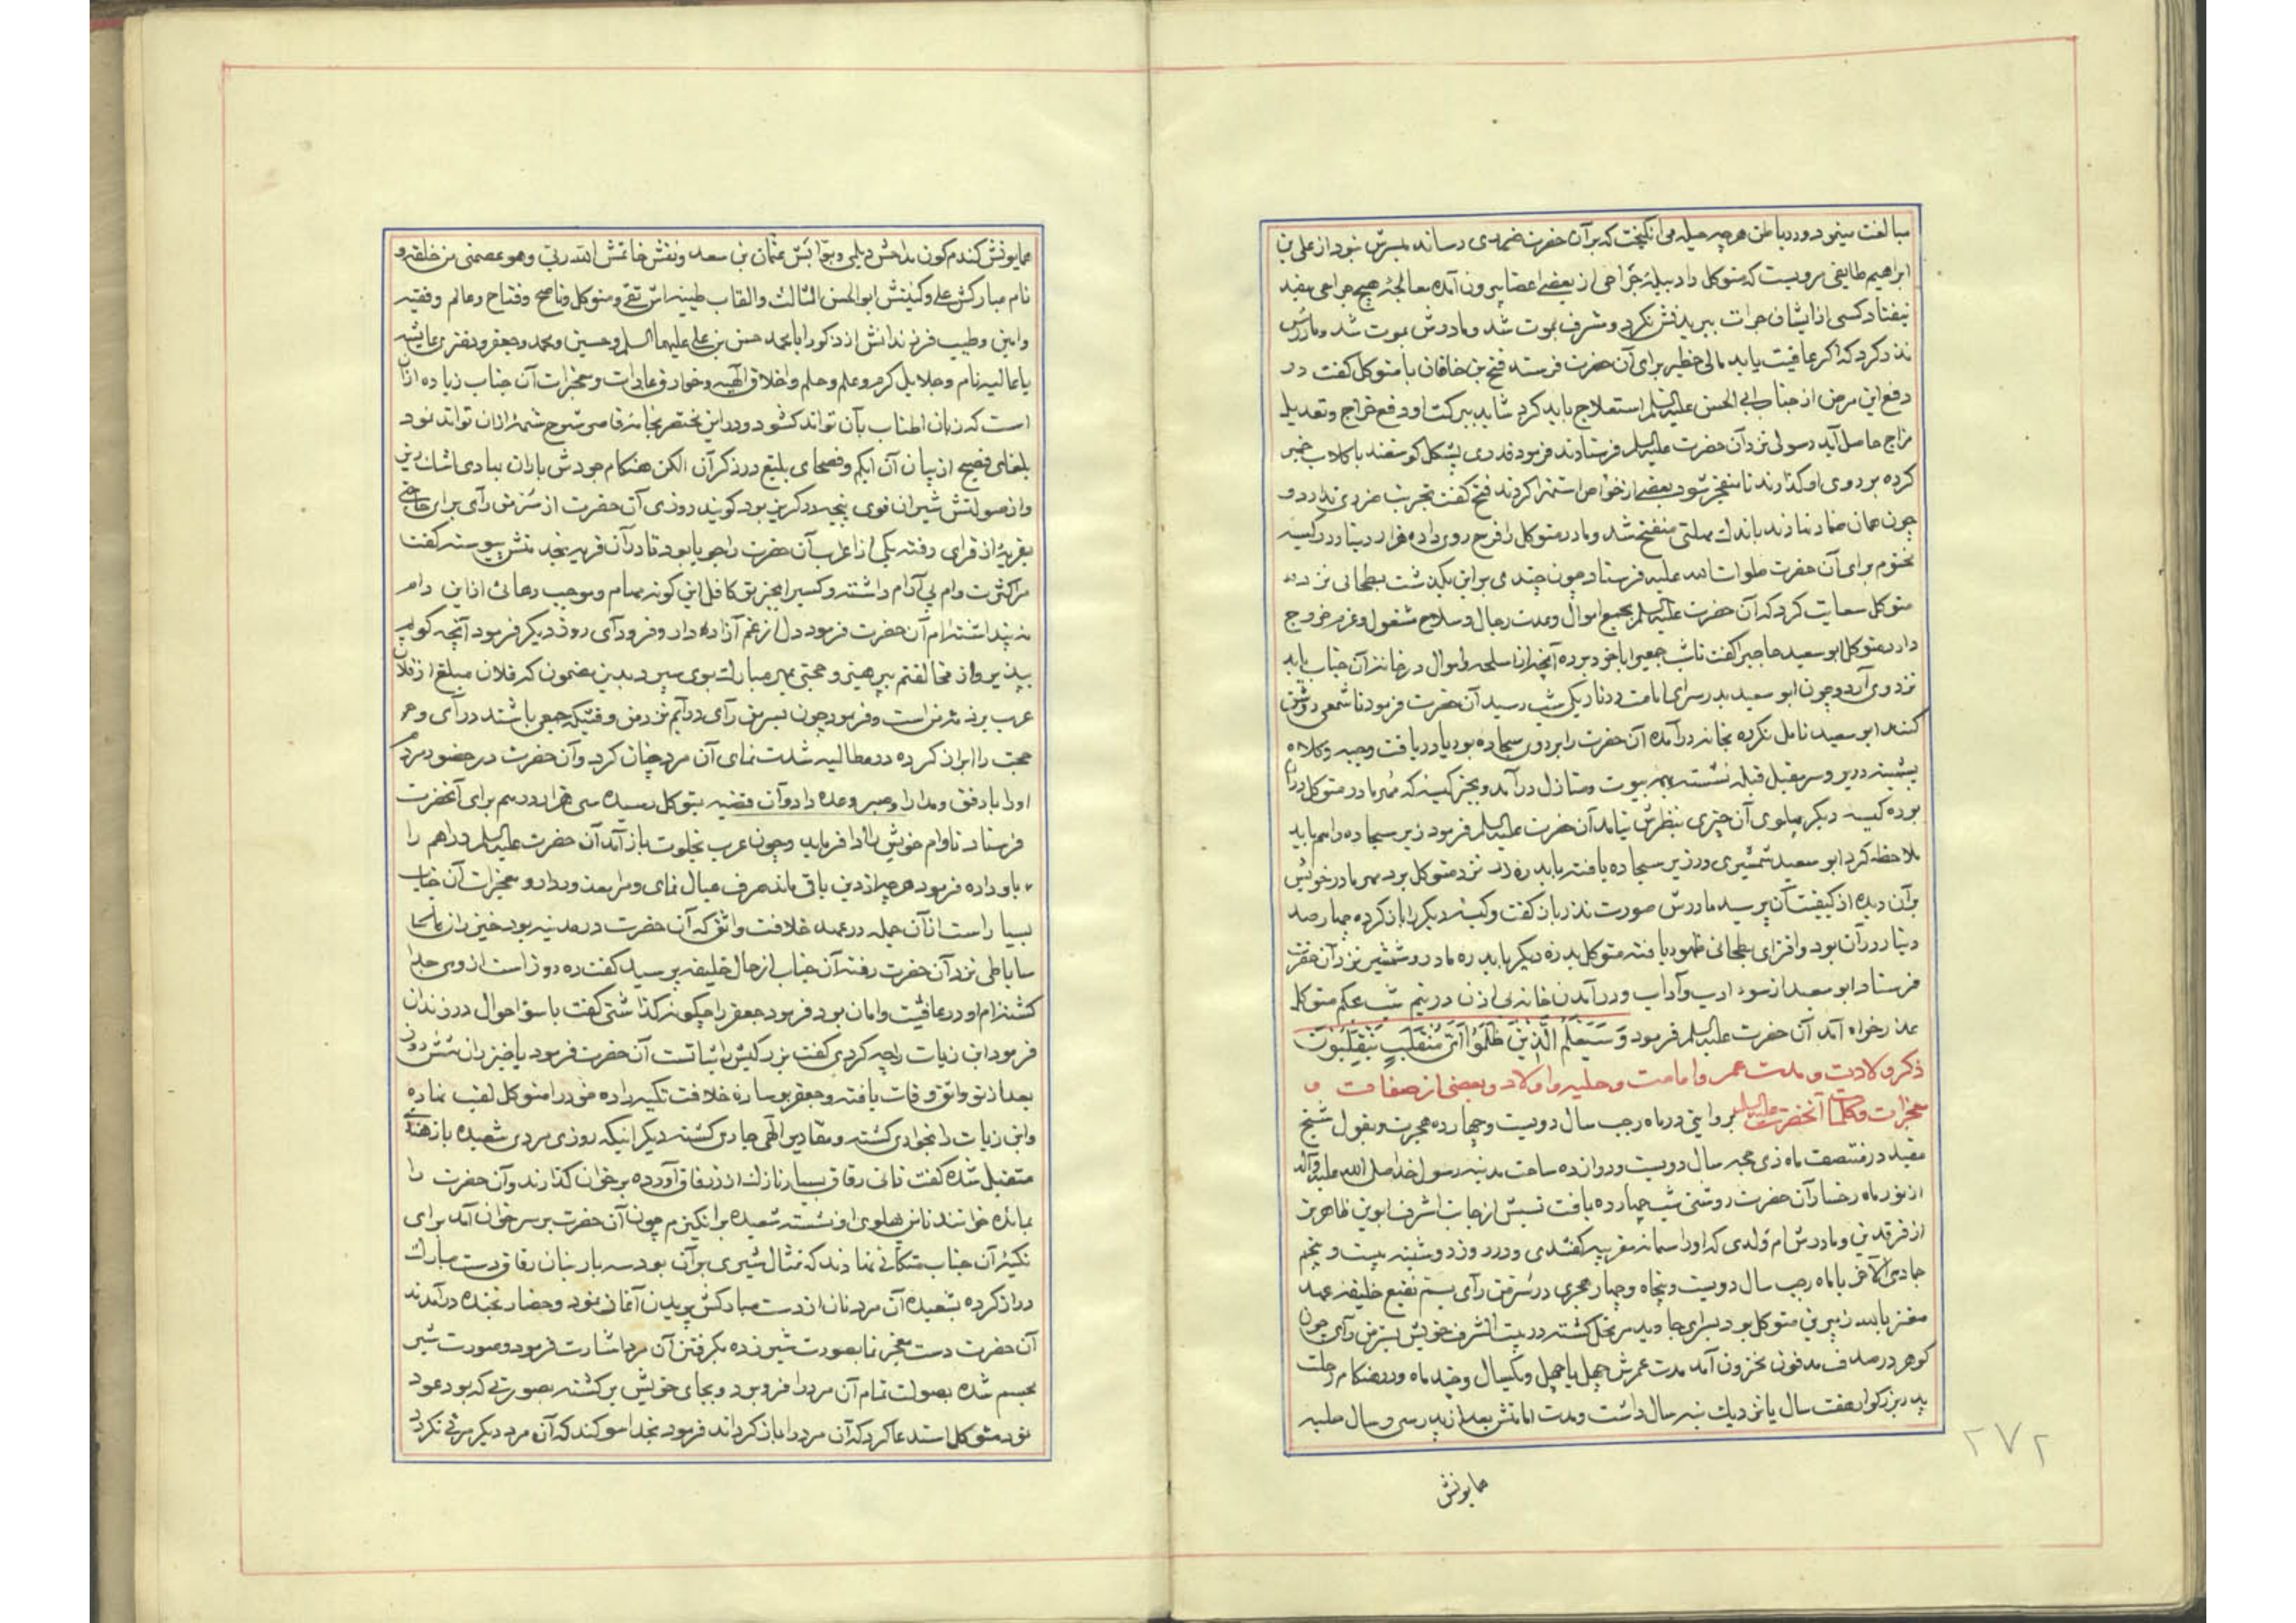 مبالغت مینمود و در باطن هرچه حیله می انگیخت که بر آن حضرت ضرری رساند میسرش نبود از علی بن
ابراهیم طایفی مرویست که متوکل را دبیله جراحی از بعضی اعضا بیرون آمده معالجه هیچ جراحی مفید
نیفتاد کسی از ایشان جرات ببریدنش نکرد و مشرف بموت شد و مادرش
نذر کرد که اگر عافیت یابد مالی خطیر برای آن حضرت فرستد فتح بن خاقان با متوکل گفت در
دفع این مرض از جناب ابی الحسن علیه السلم استعلاج باید کرد شاید ببرکت او دفع خراج و تعدیل
مزاج حاصل آید رسولی نزد آن حضرت علیه السلم فرستادند فرمود قدری پشکل کوسفند با کلاب خمیر
کرده بر روی او کذارند تا منفجر شود بعضی از خواص استهزا کردند فتح کفت تجربت ضرری ندارد و
چون همان ضماد نهادند باندک مهلتی منفتح شد و مادر متوکل را فرح روی داده هزار دینار در کیسه
مختوم برای آن حضرت صلوات الله علیه فرستاد چون چندی بر این بکذشت بطحانی نزد
متوکل سعایت کرد که آن حضرت علیه السلم بجمع اموال و عدت رجال و سلاح مشغول و عزم خروج
دارد متوکل ابو سعید حاجب را کفت تا شب جمعی را با خود برده آنچه از اسلحه و اموال در خانه آن جناب یابد
نزد وی آرد و چون ابو سعید بدر سرای امامت در تاریکی شب رسید آن حضرت فرمود تا شمعی روشن
کنند ابو سعید تامل نکرده بخانه درآمده آن حضرت را بر روی سجاده بود یا دریافت وجبه و کلاه
پشمینه در بر و سر مقبل قبله نشسته بهمه بیوت و منازل درآمد و بجز کیسه که مهر مادر متوکل در آن
بوده کیسه دیکر پهلوی آن چیزی بنظرش نیامد آن حضرت علیه السلم فرمود زیر سجاده را هم باید
ملاحظه کرد ابو سعید شمشیری در زیر سجاده یافته با بدره زر نزد متوکل برد مهر مادر خویش
بر آن دیده از کیفیت آن پرسید مادرش صورت نذر باز کفت و کیسه دیکر را باز کرده چهارصد
دینار در آن بود و افترای بطحانی ظهور یافته متوکل بدره دیکر با بدره مادر و شمشیر نزد آن حضرت
فرستاد ابو سعید از سوء ادب و آداب و در آمدن خانه بی اذن در نیم شب بحکم متوکل
عذر خواه آمد آن حضرت علیه السلم فرمود وَسَیَعْلَمُ الَّذِینَ ظَلَمُوا اَیَّ مُنْقَلَبٍ یَنْقَلِبُونَ
ذکر ولادت و مدت عمر و امامت و حلیه و اولاد و بعضی از صفات و
معجزات و کلمات آنحضرت علیه السلم بروایتی در ماه رجب سال دویست و چهارده هجرت و بقول شیخ
مفید در منتصف ماه ذی حجه سال دویست و دوازده ساحت مدینه رسول خدا صلی الله علیه وآله
از نور ماه رخسار آن حضرت روشنی شب چهارده یافت نسبش از جانب اشرف ابوین ظاهرتر
از فرقدین و مادرش ام ولدی که او را سمانه مغربیه کفتندی و در روز دوشنبه بیست و پنجم
جمادی الآخر یا ماه رجب سال دویست و پنجاه و چهار هجری در سرمن رآی بسم نقیع خلیفه عهد
معتز بالله زبیر بن متوکل بود بسرای جاوید مرتحل کشته در بیت الشرف خویش بسرمن رآی چون
کوهر در صدف مدفون مخزون آمد مدت عمرش چهل یا چهل و یکسال و چند ماه و در هنکام رحلت
پدر بزرکوار هفت سال یا نزدیک بنه سال داشت و مدت امامتش بعد از پدر سی و سه سال حلیه
همایونش
۲۷۲
همایونش کندم کون مداحش دیلمی و بوابش عثمان بن سعد و نقش خاتمش الله ربی وهو عصمتی من خلقه و
نام مبارکش علی و کنیتش ابو الحسن الثالث والقاب طیبه اش نقی و متوکل و ناصح و فتاح و عالم و فقیه
وامین و طیب فرزندانش از ذکور ابا محمد حسن بن علی علیهما السلم و حسین و محمد و جعفر و دختری عایشه
یا عالیه نام و جلایل کرم و علم و حلم و اخلاق الهیه و خوارق عادات و معجزات آن جناب زیاده از آن
است که زبان اطناب بآن تواند کشود و در این مختصر بخامه قاصر شرح شمه از آن تواند نمود
بلغای فصیح از بیان آن ابکم و فصحای بلیغ در ذکر آن الکن هنکام جودش باران
واز صولتش شیران قوی پنجه در کریز بود کویند روزی آن حضرت از سرمن رآی برای حاجتی
بقریه از قرای رفته یکی از اعراب آن حضرت را جویا بود تا در آن قریه بخدمتش پیوسته کفت
مرا کثرت وام بی آرام داشته و کسی را بجز تو کافل این کونه مهام و موجب رهائی از این دام
نه پنداشته ام آن حضرت فرمود دل از غم آزاده دار و فرود آی روز دیکر فرمود آنچه کویم
بپذیر و از مخالفتم بپرهیز و حجتی بمهر مبارک بوی سپرد بدین مضمون که فلان مبلغ از فلان
عرب بر ذمه من است و فرمود چون بسرمن رآی درآیم نزد من وقتیکه جمعی باشند درآی و
حجت را ابراز کرده در مطالبه شدت نمای آن مرد چنان کرد و آن حضرت در حضور مردم
او را با رفق و مدارا و صبر وعده داد و آن قضیه بمتوکل رسیده سی هزار درهم برای آنحضرت
فرستاد تا وام خویش را ادا فرماید و چون عرب بخلوت باز آمد آن حضرت علیه السلم دراهم را
باو داده فرمود هرچه از دین باقی ماند صرف عیال نمای و مرا معذور دار و معجزات آن جناب
بسیار است از آن جمله در عهد خلافت واثق که آن حضرت در مدینه بود خیزران
ساباطی نزد آن حضرت رفته آن جناب از حال خلیفه پرسید کفت ده روز است از وی جدا
کشته ام او در عافیت و امان بود فرمود جعفر را چکونه کذاشتی کفت با سؤ احوال در زندان
فرمود ابن زیات را چه کردی کفت بزرکیش با ثباتست آن حضرت فرمود یا خیزران شش روز
بعد از تو واثق وفات یافته و جعفر بوساده خلافت تکیه زده خود را متوکل لقب نهاده
و ابن زیات را بخواری کشته و مقادیر الهی جاری کشته دیکر اینکه روزی مردی شعبده باز هندی
متقبل شده کفت نانی رقاق بسیار نازک از رقاق آورده بر خوان کذارند و آن حضرت را
بمائده خوانند تا من پهلوی او نشسته شعبده برانکیزم چون آن حضرت بر سر خوان آمد برای
تکیه آن جناب متکائی نهادند که تمثال شیری بر آن بود سه بار بنان رقاق دست مبارک
دراز کرده بشعبده آن مرد نان از دست مبارکش پریدن آغاز نمود و حضار بخنده درآمدند
آن حضرت دست معجز نما بصورت شیر زده بکرفتن آن مرد اشارت فرمود و صورت شیر
مجسم شده بصولت تمام آن مرد را فرو برد و بجای خویش برکشته بصورتی که بود عود
نمود متوکل استدعا کرد که آن مرد را باز کرداند فرمود بخدا سوکند که آن مرد دیکر مرئی نکردد